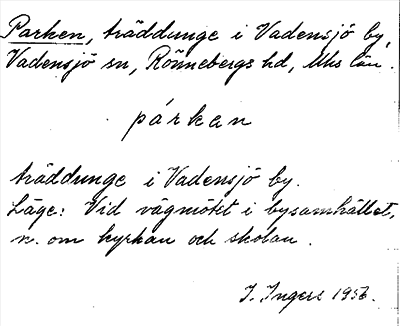 Parken, träddunge i Vadensjö by,
Vadensjö sn, Rönnebergs hd, Mhs län.
párkan
träddunge i Vadensjö by.
Läge: Vid vägmötet i bysamhället,
n. om kyrkan och skolan.
I. Ingers 1956.